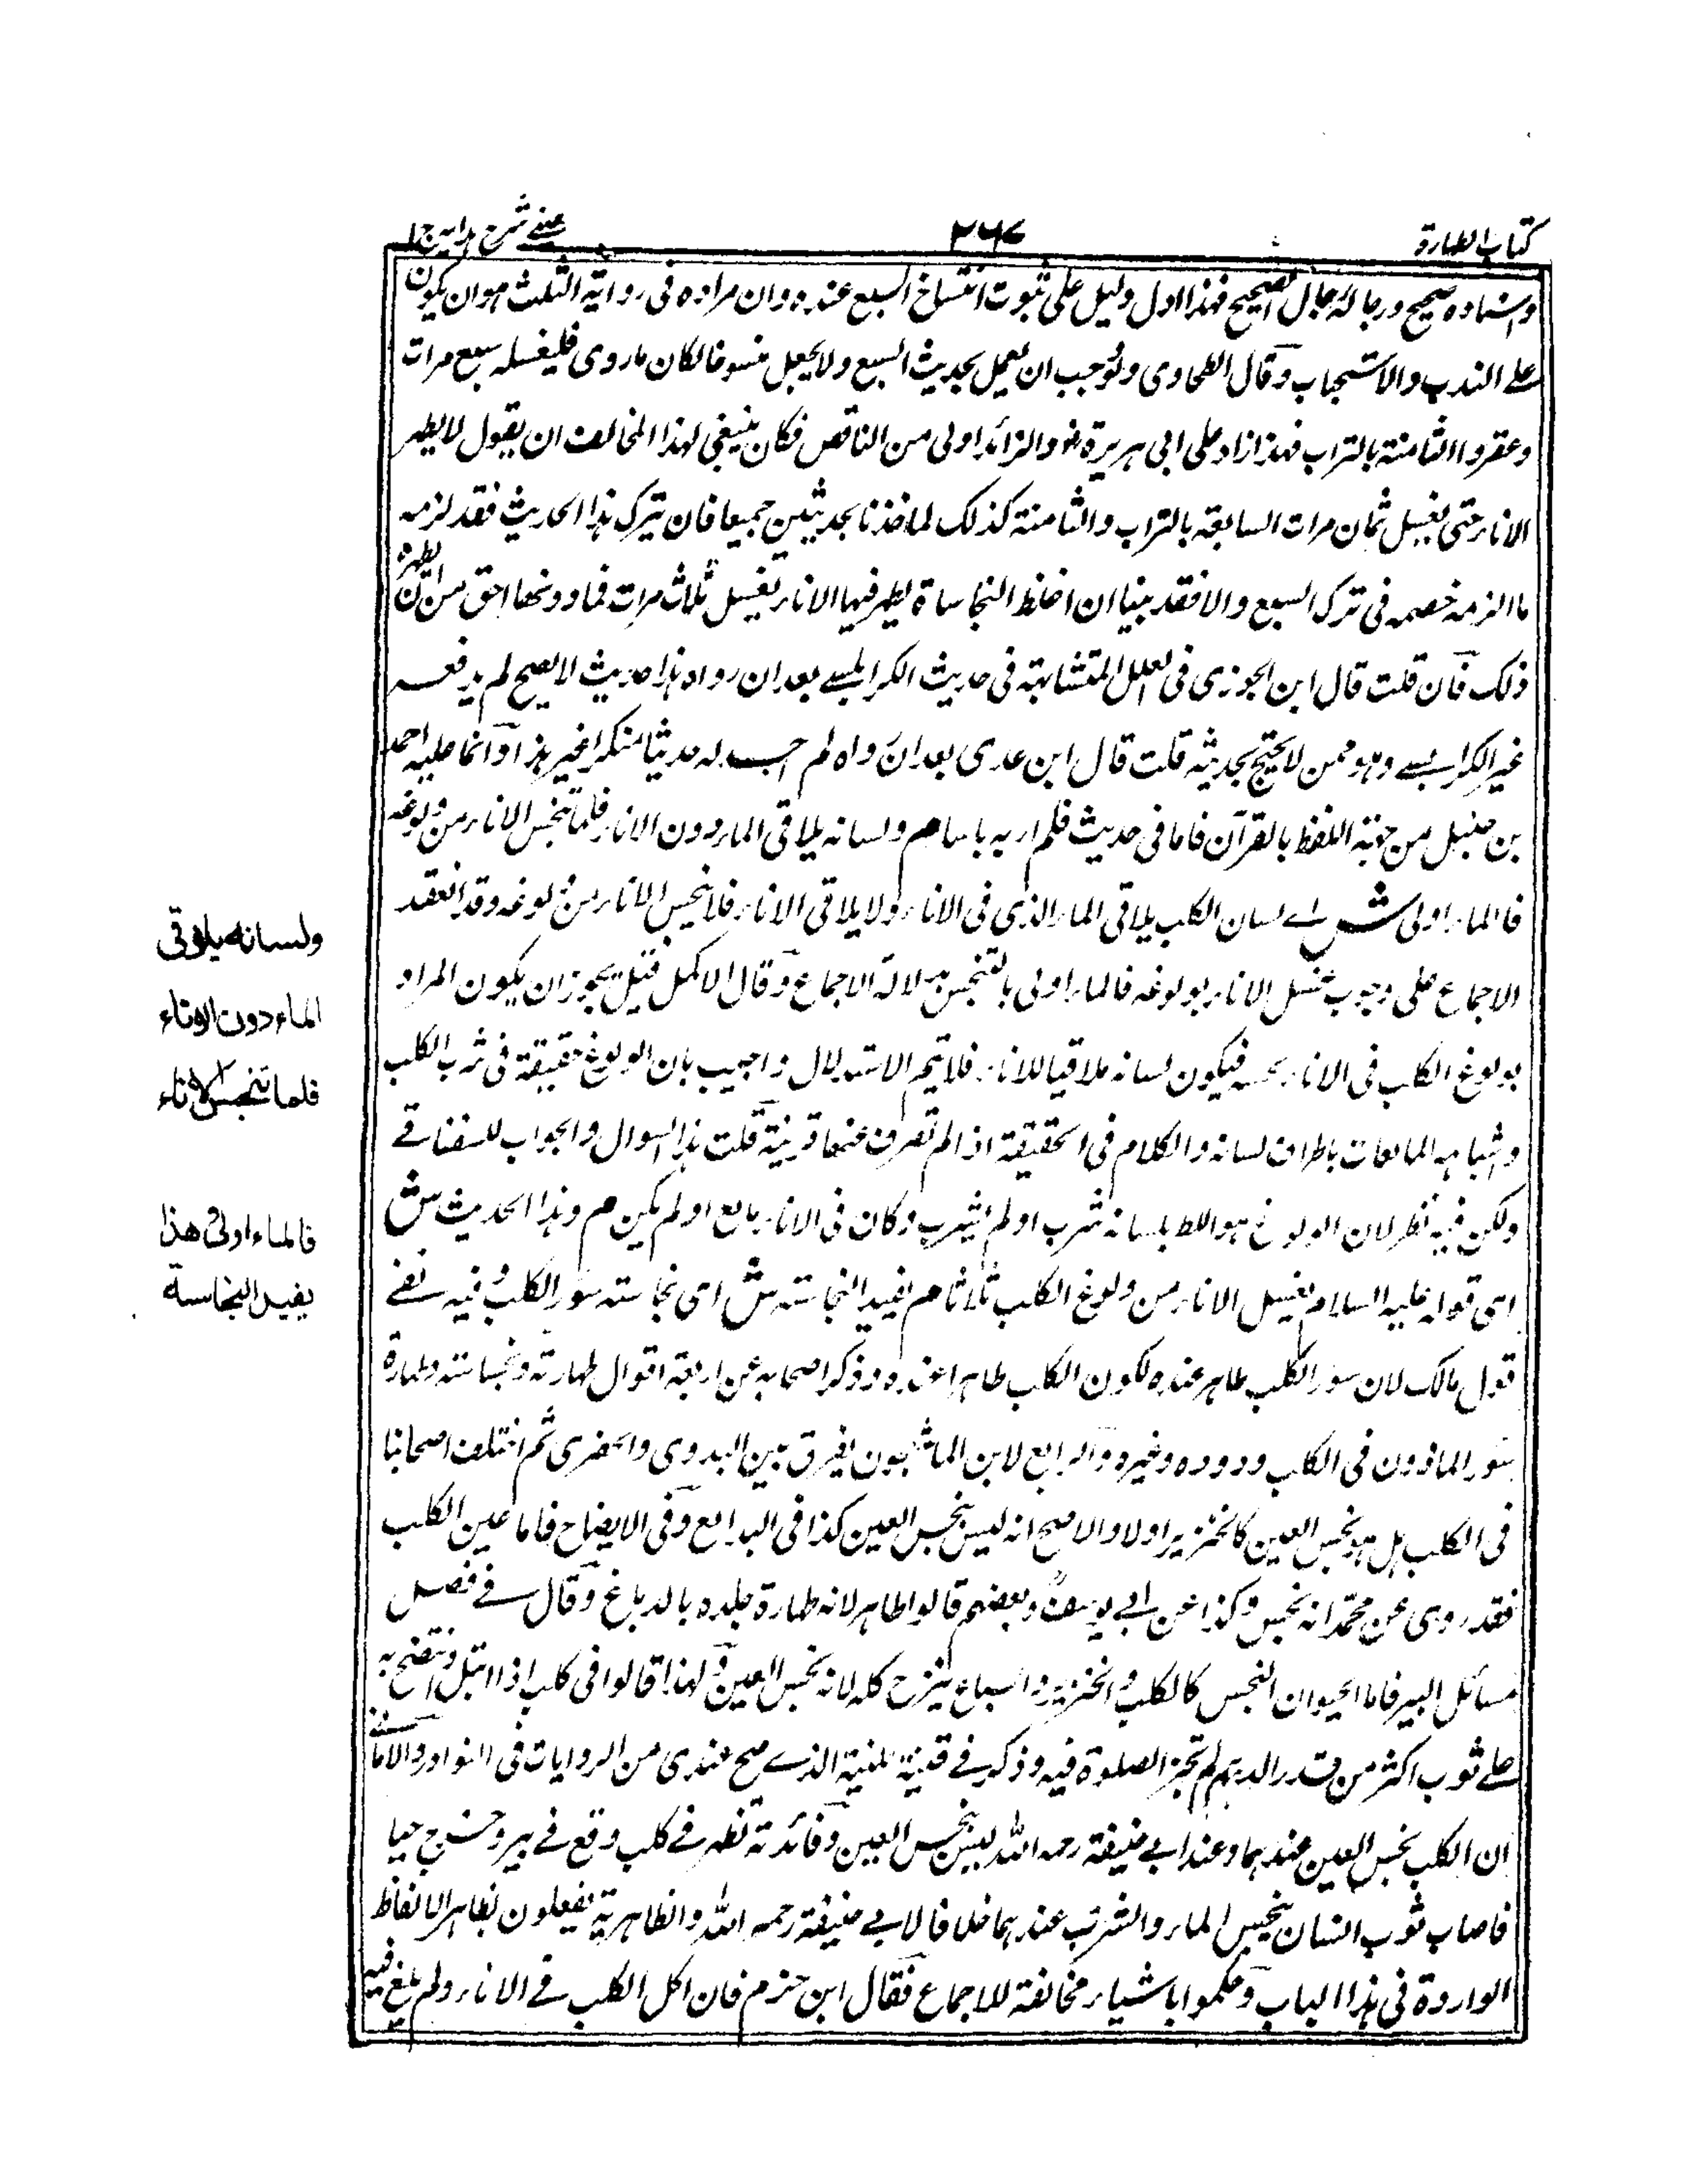 كتاب الطهارة
٢٦٧
عينى شرح هدايه ج ١
واسناده صحيح ورجاله رجال الصحيح فهذا ادل دليل على ثبوت انتساخ السبع عنده وان مراده فى رواية الثلث هو ان يكون
على الندب والاستحباب وقال الطحاوى ولو وجب ان يعمل بحديث السبع ولا يجعل منسوخا لكان ما روى فليغسله سبع مرات
وعفروا الثامنة بالتراب فهذا زاد على ابى هريرة رض والزائد اولى من الناقص فكان ينبغى لهذا المخالف ان يقول لا يطهر
الاناء حتى يغسل ثمان مرات السابعة بالتراب والثامنة كذلك لماخذنا بحديثين جميعا فان ترك هذا الحديث فقد لزمه
ما الزمه خصمه فى ترك السبع والا فقد بينا ان اغلظ النجاساة يطهر فيها الاناء بغسل ثلاث مرات فما دونها احق من ان يطهره
ذلك فان قلت قال ابن الجوزى فى العلل المتشابهة فى حديث الكرابيسے بعد ان رواه هذا حديث لا يصح لم يرفعه
غير الكرابيسے وهو ممن لا يحتج بحديثه قلت قال ابن عدى بعد ان رواه لم اجد له حديثا منكرا غير هذا وانما عليه احمد
بن حنبل من جهة اللفظ بالقرآن فاما فى حديث فلم ار به باسا م ولسانه يلاقى الماء دون الاناء فلما تنجس الاناء من ولوغه
فالماء اولى ش اے لسان الكلب يلاقى الماء الذى فى الاناء ولا يلاقى الاناء فلا ينجس الاناء من ولوغه وقد انعقد
الاجماع على وجوب غسل الاناء بولوغه فالماء اولى بالتنجس بدلالة الاجماع وقال الاكمل قيل يجوز ان يكون المراد
بولوغ الكلب فى الاناء لحسه فيكون لسانه ملاقيا للاناء فلا يتم الاستدلال واجيب بان الولوغ حقيقة فى شرب الكلب
واشباهه المائعات باطراف لسانه والكلام فى الحقيقة اذا لم تصرف عنها قرينة قلت هذا السوال والجواب للسغناقے
ولكن فيه نظر لان الولوغ هو اللط بلسانه شرب او لم يشرب وكان فى الاناء مائع او لم يكن م وهذا الحديث ش
اى قوله عليه السلام يغسل الاناء من ولوغ الكلب ثلاثا م يفيد النجاسته ش اى نجاسته سور الكلب وفيه نفے
قول مالك لان سور الكلب طاهر عنده لكون الكلب طاهرا عنده وذكر اصحابه عن اربعة اقوال طهارته ونجاسته وطهارة
سور الماذون فى الكلب ودوده وغيره والرابع لابن الماجشون يفرق بين البدوى والحضرى ثم اختلف اصحابنا
فى الكلب هل هو نجس العين كالخنزير اولا والاصح انه ليس بنجس العين كذا فى البدائع وفى الايضاح فاما عين الكلب
فقد روى عن محمد انه نجس وكذا عن ابے يوسف وبعضهم قالوا طاهر لانه طهارة جلده بالدباغ وقال فے فصل
مسائل البير فاما الحيوان النجس كالكلب والخنزير والسباع ينزح كله لانه نجس العين ولهذا قالوا فى كلب اذا ابتل وانتضح به
علے ثوب اكثر من قدر الدرهم لم تجز الصلوة فيه وذكر فے قنية المنية الذے صح عندى من الروايات فى النوادر والامالے
ان الكلب نجس العين عندهما وعند ابے حنيفة رحمه الله ليس بنجس العين وفائدته تظهر فے كلب وقع فے بير وخرج حيا
فاصاب ثوب انسان ينجس الماء والثوب عندهما خلافا لابے حنيفة رحمه الله والظاهرية يفعلون بظاهر الالفاظ
الواردة فى هذا الباب وحكموا باشياء مخالفة للاجماع فقال ابن حزم فان اكل الكلب فے الاناء ولم يلغ فيه
ولسانه يلاقى
الماء دون الاناء
فلما تنجس الاناء
فالماء اولى هذا
يفيد النجاسة